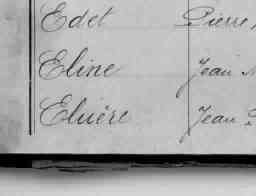 Edet Pierre
Eline Jean
Eluère Jean